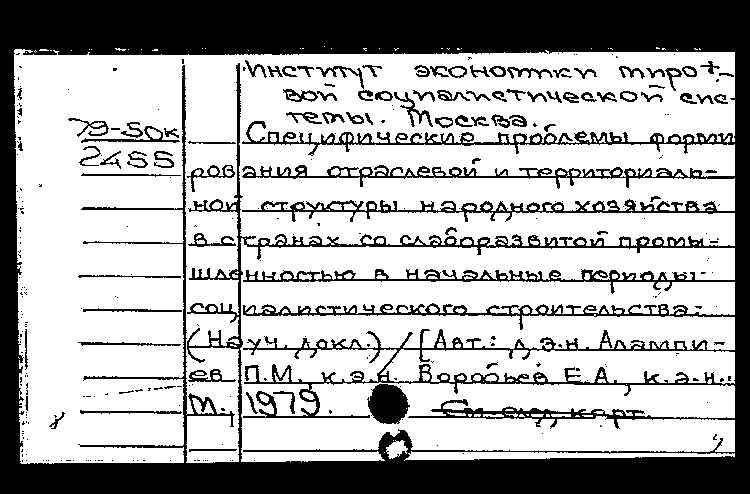 Институт экономики миро-
вой социалистической сис-
темы. Москва.
79-50к
2455
Специфические проблемы форми
рования отраслевой и территориаль-
ной структуры народного хозяйства
в странах со слаборазвитой промы-
шленностью в начальные периоды
социалистического строительства.
(Науч. докл.) / [Авт.: д.э.н. Алампи-
ев П.М., к.э.н. Воробьев Е.А., к.э.н.
М., 1979.
См. след. карт.